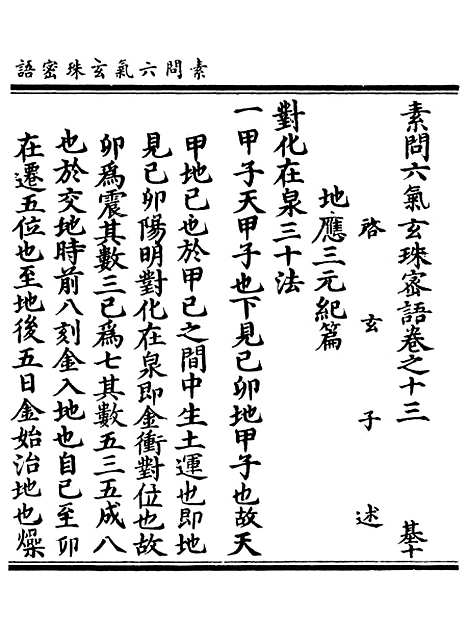 素問六氣玄珠密語
素問六氣玄珠密語卷之十三 基十
啓玄子述
地應三元紀篇
對化在泉三十法
一甲子天甲子也下見己卯地甲子也故天
甲地己也於甲己之間中生土運也即地
見己卯陽明對化在泉即金衝對位也故
卯爲震其數三己爲七其數五三五成八
也於交地時前八刻金入地也自己至卯
在遷五位也至地後五日金始治地也燥